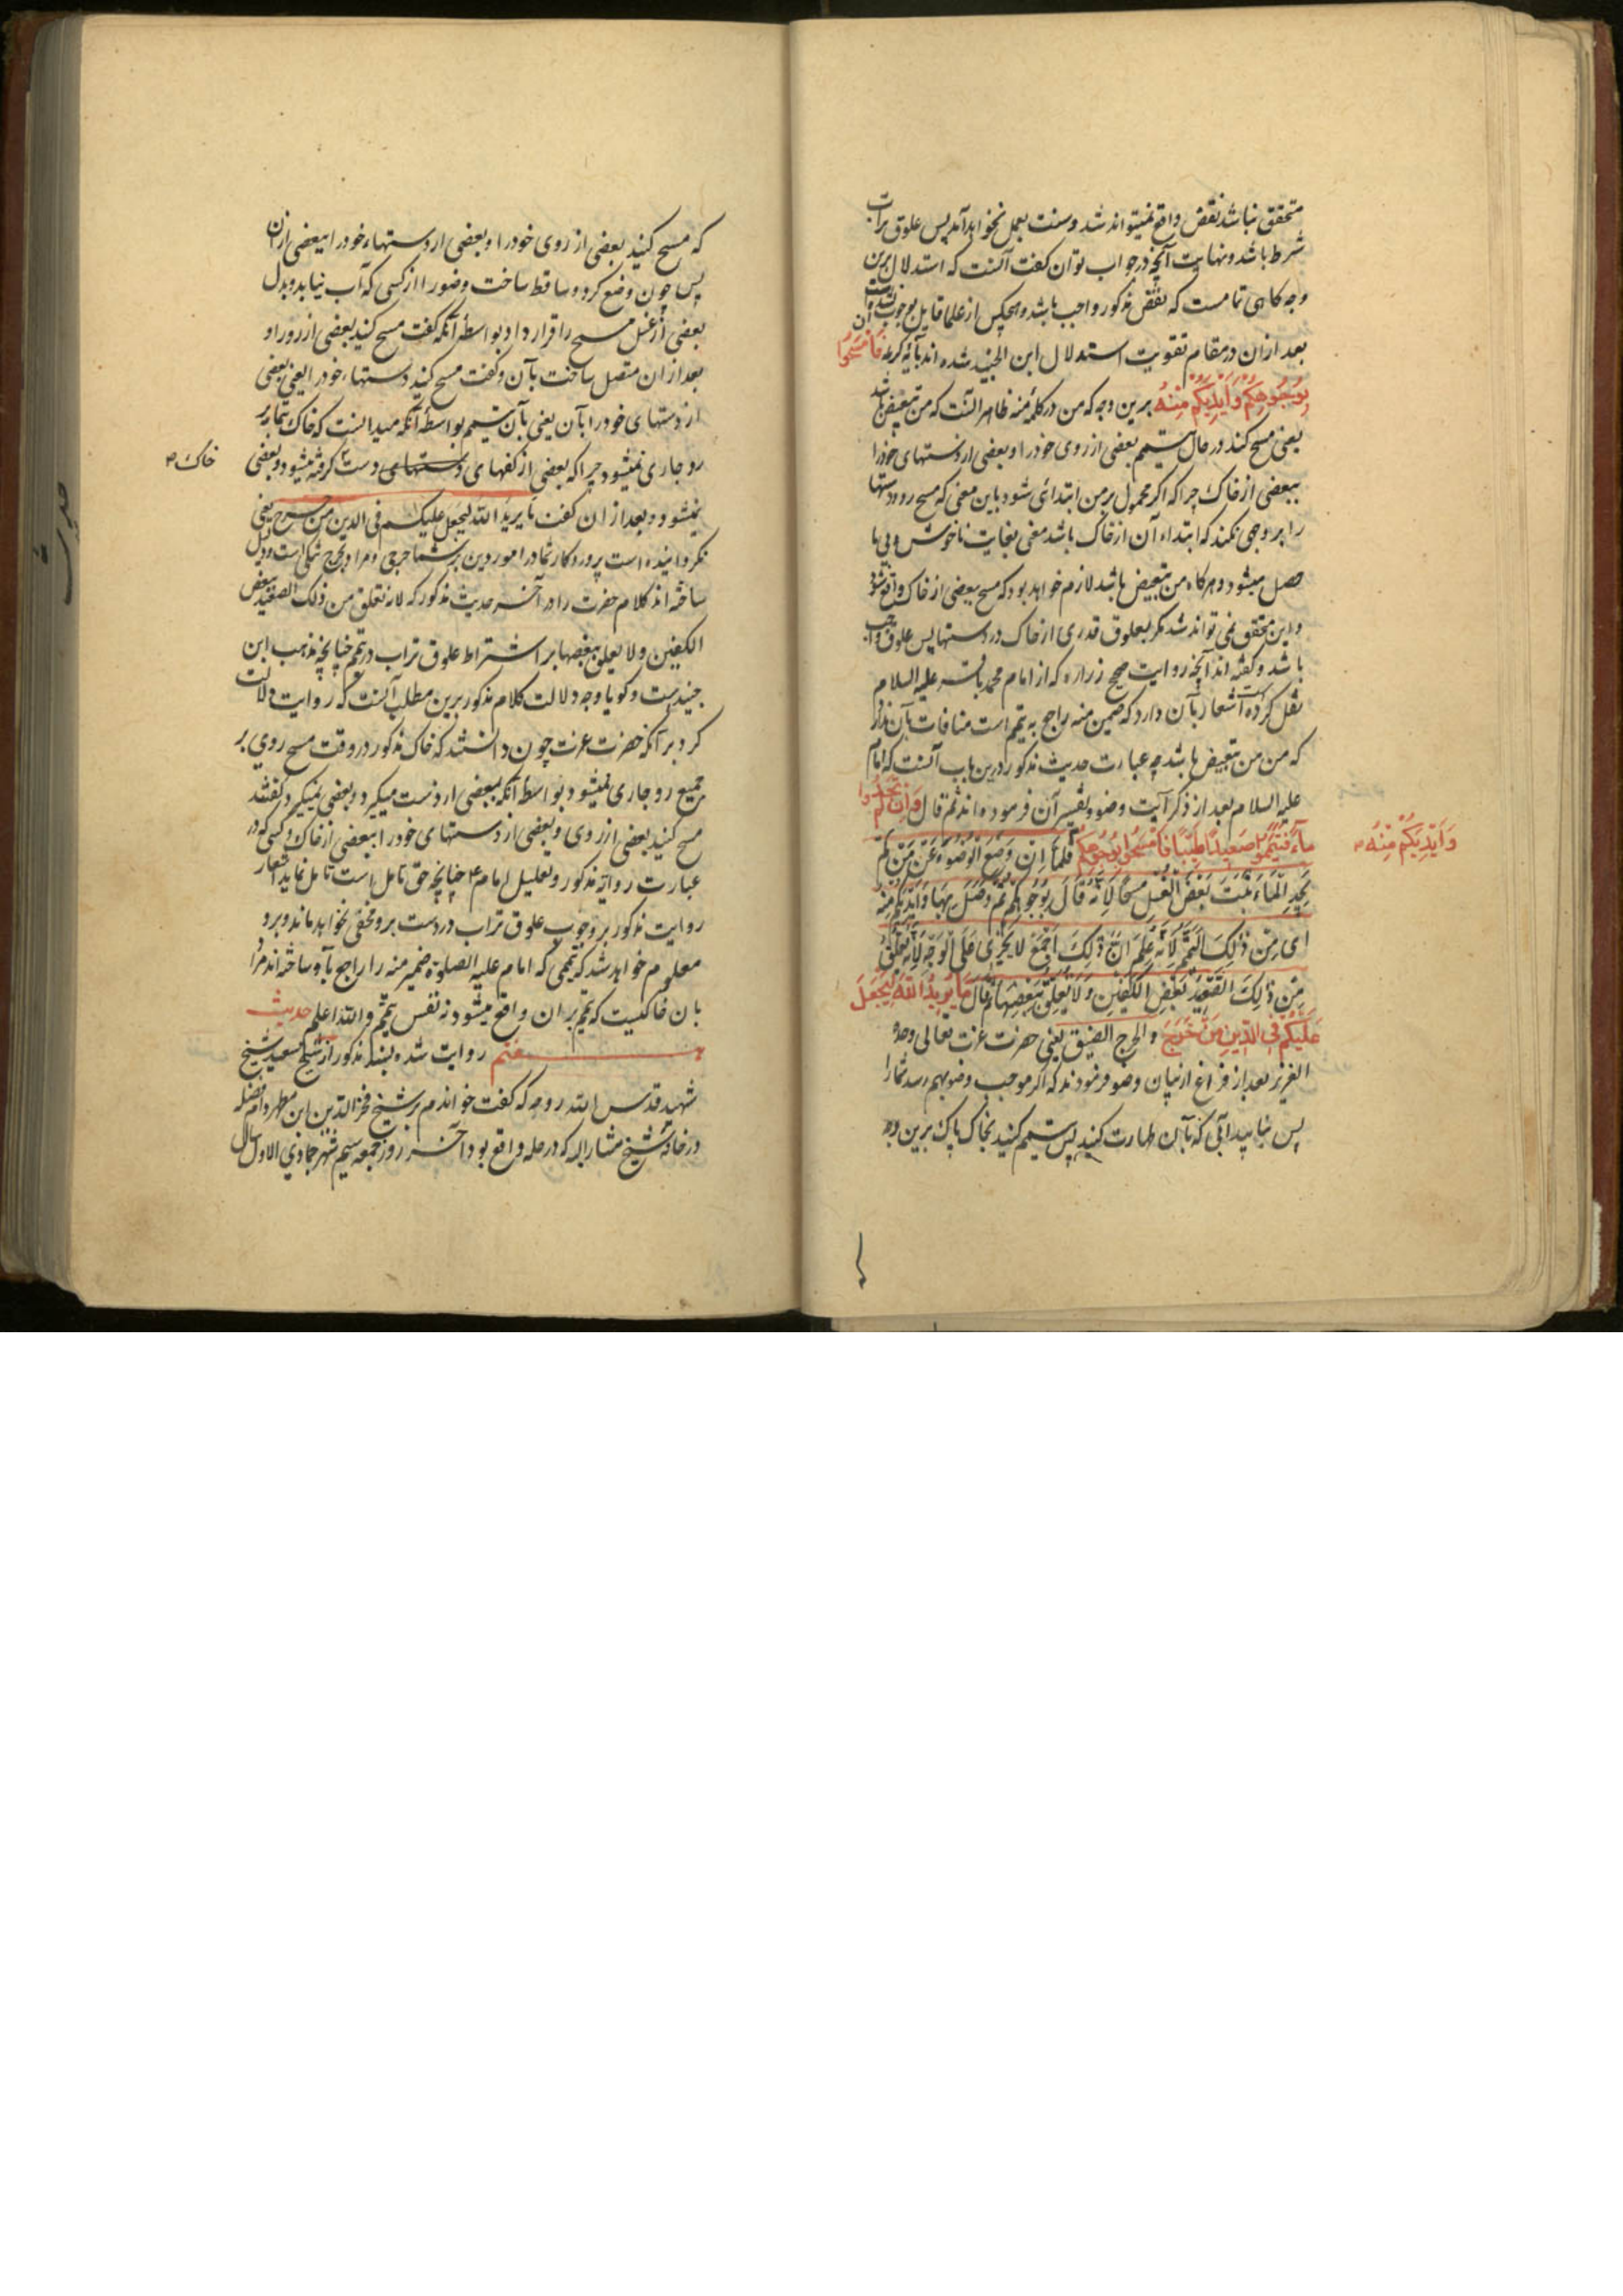 متحقق نباشد نقض واقع نمیتواند شد و سنت بعمل نخواهد آمد پس علوق تراب
شرط باشد و نهایت آنچه در جواب توان گفت آنست که استدلال برین
وجه کاهی تمامست که نقض مذکور واجب باشد و هیچکس از علما قایل بوجوب آن نشده است
بعد ازان در مقام تقویت استدلال ابن الجنید شده اند بآیه کریمه فَامْسَحُوا
بِوُجُوهِكُمْ وَأَيْدِيكُمْ مِنْهُ برین وجه که من در کلمه منه ظاهر آنست که من تبعیض باشد
یعنی مسح کند در حال تیمم بعضی از روی خود را و بعضی از دستهای خود را
ببعضی از خاک چرا که اگر محمول بر من ابتدائی شود باین معنی که مسح رو و دستها
را بر وجهی نکند که ابتداء آن از خاک باشد معنی بغایت ناخوش و بی بها
حصل میشود و هرکاه من تبعیض باشد لازم خواهد بود که مسح ببعضی از خاک واقع شود
و این محقق نمی تواند شد مکر بعلوق قدری از خاک در دستها پس علوق واجب
باشد و کفته اند آنچه روایت صحیح زراره که از امام محمد باقر علیه السلام
نقل کرده است اشعار بآن دارد که ضمیر منه راجع به تیمم است منافات بآن ندارد
که من من تبعیض باشد چه عبارت حدیث مذکور درین باب آنست که امام
علیه السلام بعد از ذکر آیت وضو و تفسیر آن فرموده اند ثم قال فَإِنْ لَمْ تَجِدُوا
مَاءً فَتَيَمَّمُوا صَعِيدًا طَيِّبًا فَامْسَحُوا بِوُجُوهِكُمْ فَلَمَّا اِنْ وَضَعَ الْوُضُوءَ عَنْ مَنْ لَمْ
وَأَيْدِيكُمْ مِنْهُ
يَجِدِ الْمَاءَ ثَبَتَ بَعْضَ الْغَسْلِ مَسْحًا لِاَنَّهُ قَالَ بِوُجُوهِكُمْ ثُمَّ وَصَلَ بِهَا وَاَيْدِيكُمْ مِنْهُ
اى مِنْ ذٰلِكَ التَّيَمُّمِ لِاَنَّهُ عَلِمَ اَنَّ ذٰلِكَ اَجْمَعَ لَا يَجْرِى عَلَى الْوَجْهِ لِاَنَّهُ تَعَلَّقَ
مِنْ ذٰلِكَ الصَّعِيدِ بِبَعْضِ الْكَفَّيْنِ وَلَا يَعْلَقُ بِبَعْضِهَا ثُمَّ قَالَ مَا يُرِيدُ اللَّهُ لِيَجْعَلَ
عَلَيْكُمْ فِي الدِّينِ مِنْ حَرَجٍ و الحرج الضیق یعنی حضرت عزت تعالی وحده
العزیز بعد از فراغ از بیان وضو فرمودند که اگر موجب وضو بهم رسد شما را
پس نیابید آبی که بآن طهارت کنید پس تیمم کنید بخاک پاک برین وجه
که مسح کنید بعضی از روی خود را و بعضی از دستهاء خود را ببعضی از آن
پس چون وضع کرد و ساقط ساخت وضو را از کسی که آب نیابد و بدل
بعضی از غسل مسح را قرار داد بواسطه آنکه گفت مسح کنید بعضی از رو را و
بعد از ان متصل ساخت بآن و کفت مسح کنید دستهاء خود را یعنی بعضی
از دستهای خود را بآن یعنی بآن تیمم بواسطه آنکه میدانست که خاک بتمام بر
رو جاری نمیشود چرا که بعضی از کفهای دستهای دست گرفته میشود و ببعضی
خاک
نمیشود و بعد از ان کفت ما یرید اللّه لیجعل علیکم فی الدین من حرج یعنی
نکردانیده است پروردکار شما در امور دین بر شما حرجی و مراد بحرج تنکی است و دلیل
ساخته اند کلام حضرت را در آخر حدیث مذکور که لانه تعلق من ذلک الصعید ببعض
الکفین ولا یعلق ببعضها بر اشتراط علوق تراب در تیمم چنانچه مذهب ابن
جنیدست و کویا وجه دلالت کلام مذکور برین مطلب آنست که روایت دلالت
کرد بر آنکه حضرت عزت چون دانستند که خاک مذکور در وقت مسح روی بر
جمیع رو جاری نمیشود بواسطه آنکه ببعضی از دست میکیرد و ببعضی نمیکیرد کفتند
مسح کنید بعضی از روی و بعضی از دستهای خود را ببعضی از خاک و کسی که در
عبارت روایة مذکور و تعلیل امام ع چنانچه حق تامل است تامل نماید اشعار
روایت مذکور بر وجوب علوق تراب در دست برو مخفی نخواهد ماند و برو
معلوم خواهد شد که تیممی که امام علیه الصلوة ضمیر منه را راجع بآن ساخته اند مراد
بان خاکیست که تیمم بر ان واقع میشود نه نفس تیمم و اللّه اعلم حدیث
هفتم روایت شده بسند مذکور از شیخ سعید شیخ
شهید قدس اللّه روحه که کفت خواندم بر شیخ فخر الدین ابن مطهر دام فضله
در خانه شیخ مشار الیه که در حله واقع بود آخر روز جمعه سیم شهر جمادی الاول سال